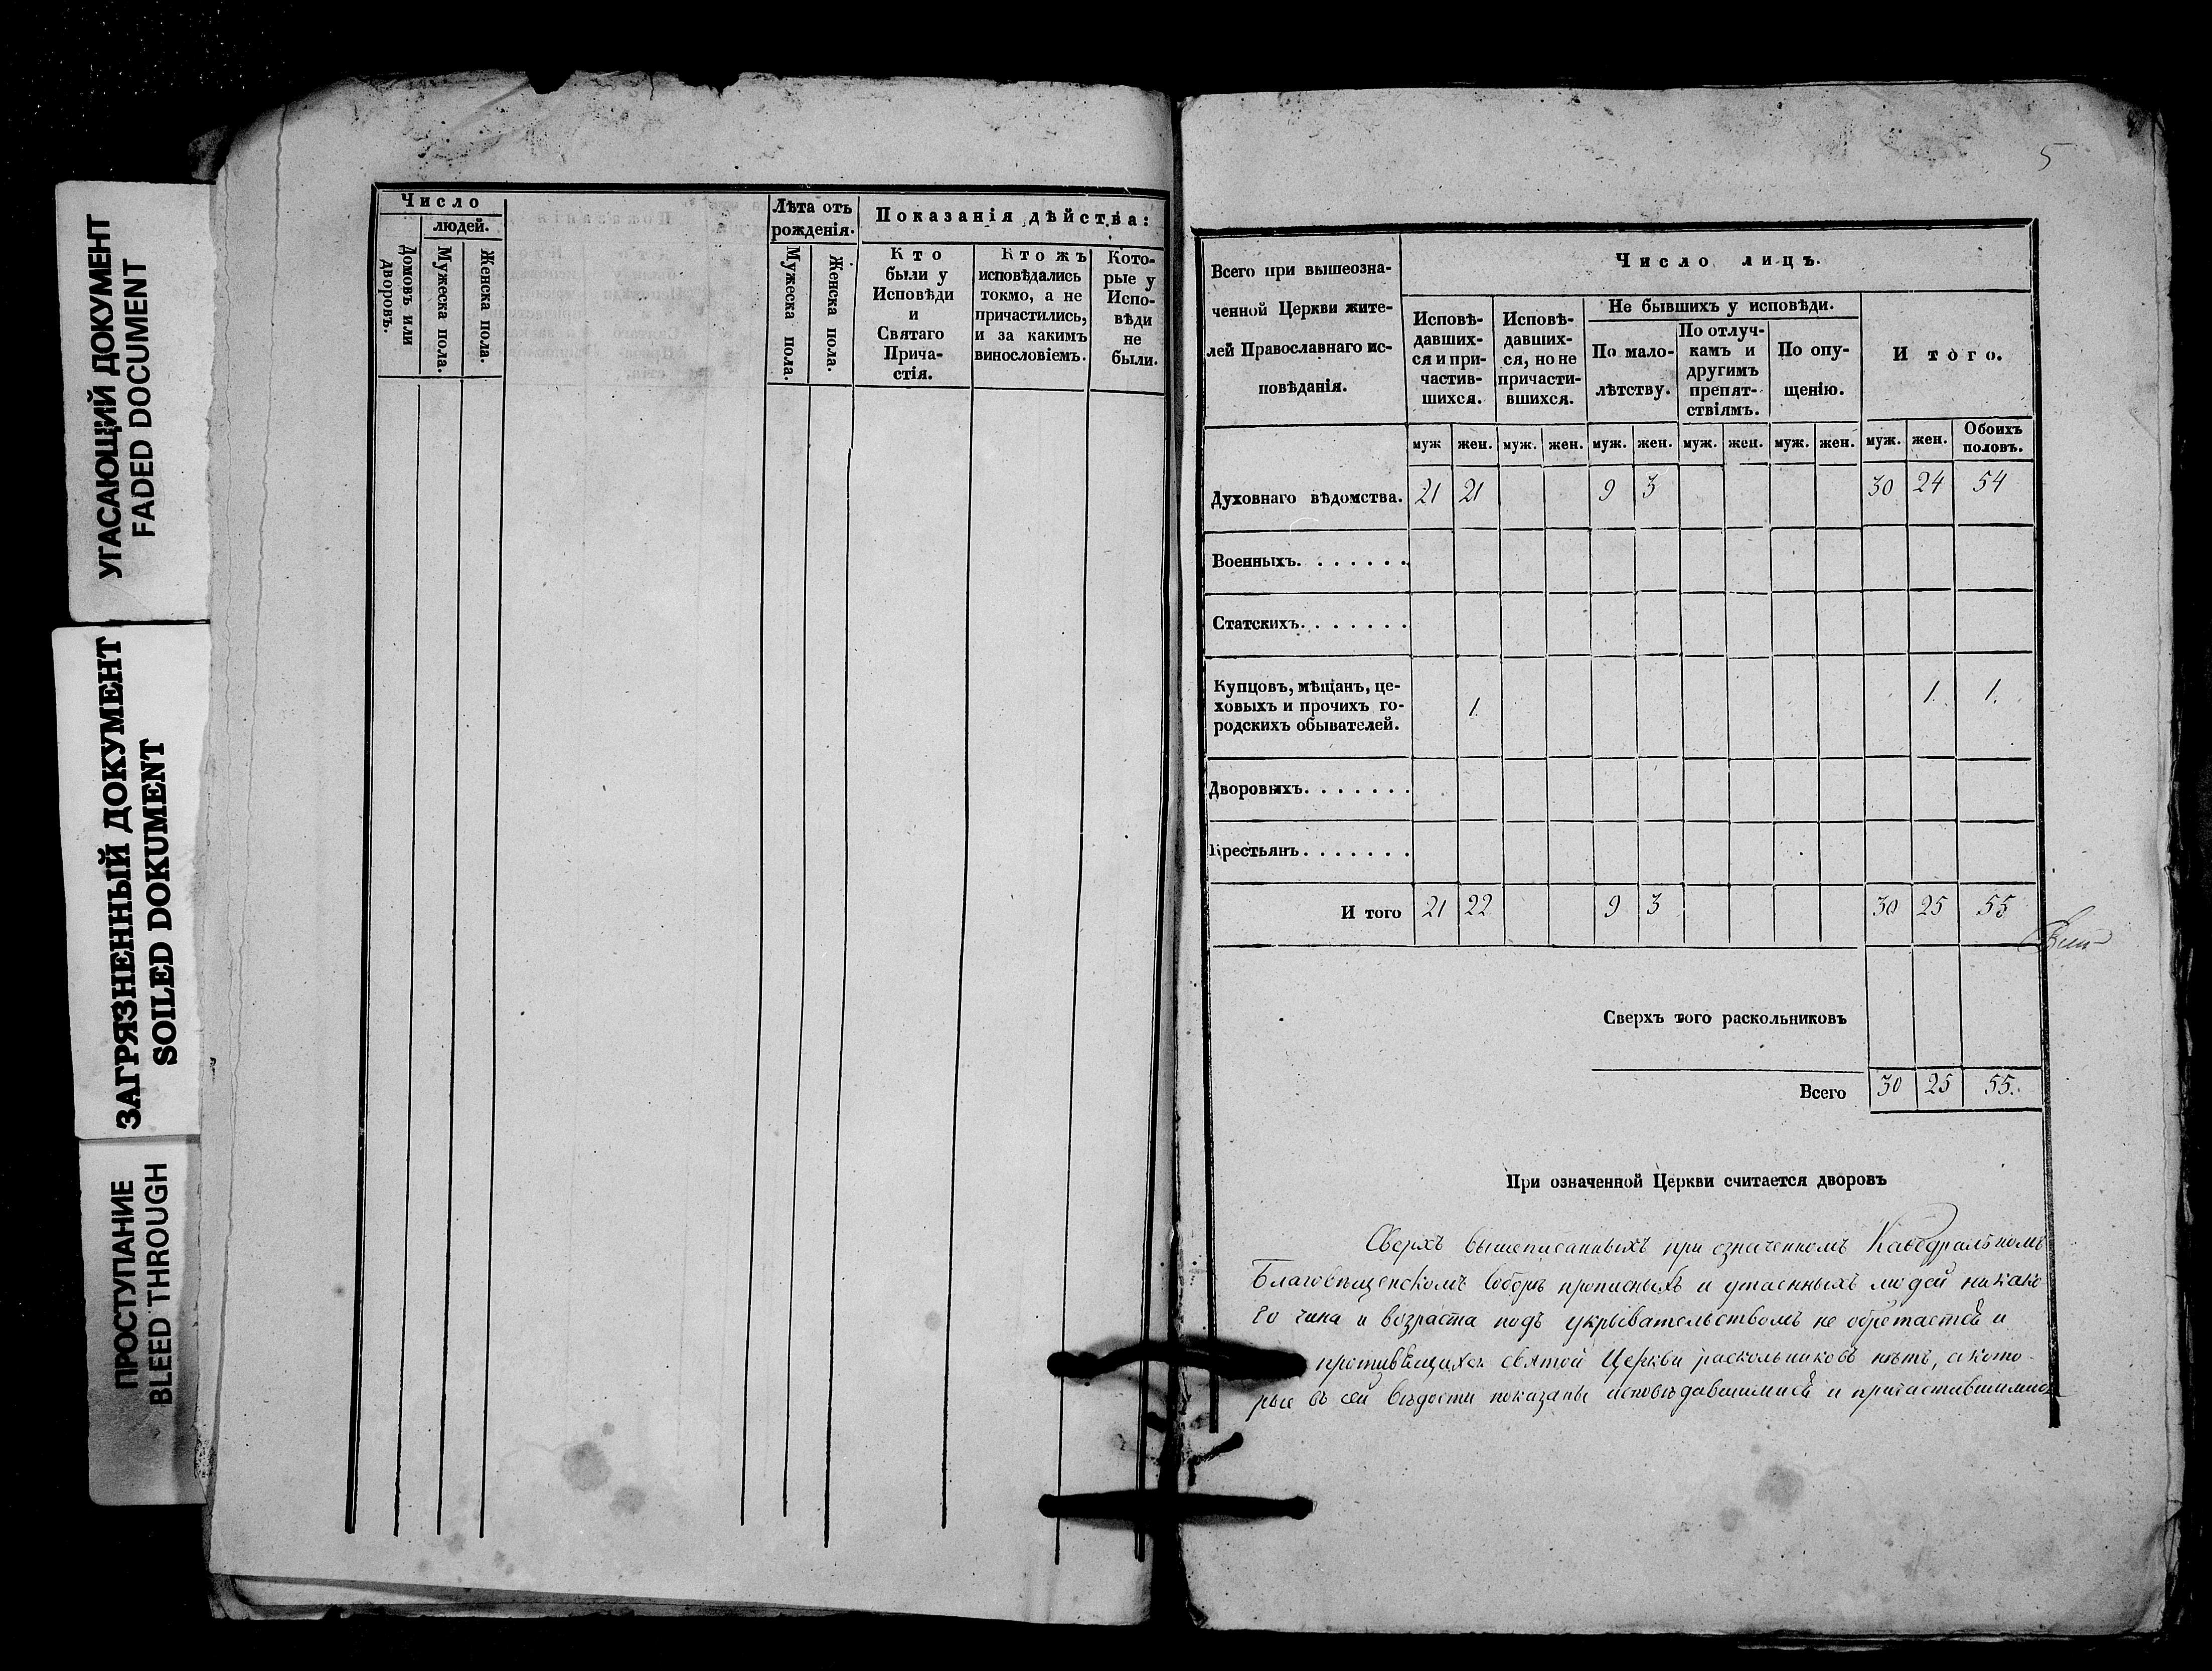 УГАСАЮЩИЙ ДОКУМЕНТ
FADED DOCUMENT
ЗАГРЯЗНЕННЫЙ ДОКУМЕНТ
SOILED DOKUMENT
ПРОСТУПАНИЕ
BLEED THROUGH
Число
людей.
Домовъ или
дворовъ.
Мужеска пола.
Женска пола.
Лѣта отъ
рожденія.
Мужеска пола.
Женска пола.
Показанія дѣйства:
Кто
были у
Исповѣди
и
Святаго
Прича-
стія.
Ктожъ
исповѣдались
токмо, а не
причастились,
и за какимъ
винословіемъ.
Кото-
рые у
Испо-
вѣди
не
были.
5
Всего при вышеозна-
ченной Церкви жите-
лей Православнаго ис-
повѣданія.
Число лицъ.
Исповѣ-
давших-
ся и при-
частив-
шихся.
Исповѣ-
давших-
ся, но не
причасти-
вшихся.
Не бывшихъ у исповѣди.
По мало-
лѣтству.
По отлуч-
камъ и
другимъ
препят-
ствіямъ.
По опу-
щенію.
И того.
муж жен. муж. жен. муж. жен. муж. жен. муж. жен. муж. жен. Обоихъ
половъ.
Духовнаго вѣдомства. 21 21 9 3 30 24 54
Военныхъ. . . . . . .
Статскихъ. . . . . . .
Купцовъ, мѣщанъ, це-
ховыхъ и прочихъ го-
родскихъ обывателей. 1. 1. 1.
Дворовыхъ. . . . . . .
Крестьянъ. . . . . . .
И того 21 22 9 3 30 25 55
Сверхъ того раскольниковъ
Всего 30 25 55.
При означенной Церкви считается дворовъ
Сверхъ вышеписанныхъ при означенномъ Каѳедральномъ
Благовѣщенскомъ Соборѣ прописныхъ и утаенныхъ людей никако
го чина и возраста подъ укрывательствомъ не обрѣтается и
противящихся святой Церкви раскольниковъ нѣтъ, а кото-
рые въ сей вѣдости показаны исповѣдавшимися и причастившимися